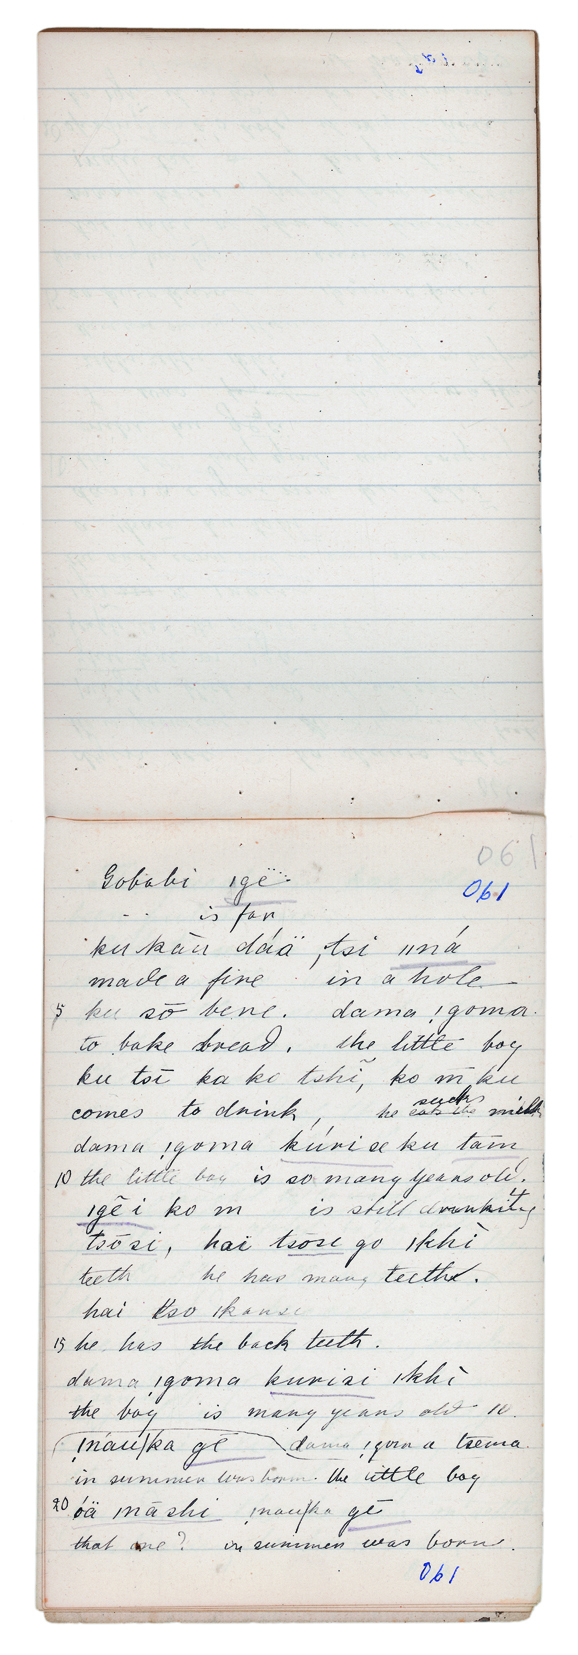 061
061
Gobabi ıgë
is far
ku kàu dáä, tsi ıı ná
made a fire in a hole
5 ku sō bene. dama !goma
to bake bread. the little boy
ku tsī ka ko tshĩ, ko m̄ ku
comes to drink, he sucks eats the milk
dama !goma kúrise ku tam
10 the little boy is so many years old.
ıgē i ko m is still drinking
tsōsi, hai tsose go ıkhì
teeth he has many teeth.
hai tso ıkause
15 he has the back teeth.
dama !goma kurisi ıkhì
the boy is many years old 10.
!náu/ka gē dama !goma tsema
in summer was born. the little boy
20 óä māshi !nau/ka gē
that one? in summer was born.
061